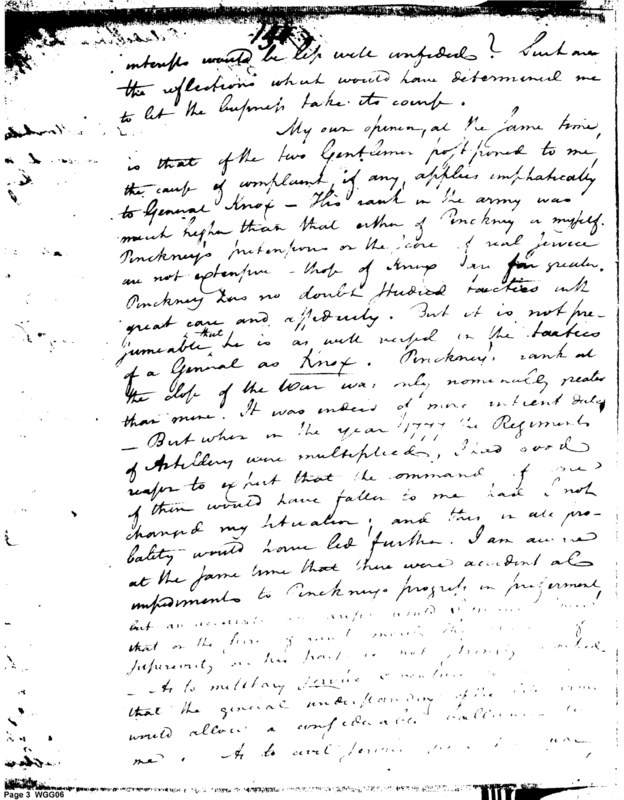 interests would be less well confided? Such are
the reflections which would have determined me
to let the business take its course.
My own opinion, at the same time,
is that of the two Gentlemen postponed to me,
the cause of complaint, if any, applies emphatically
to General Knox – His rank in the army was
much higher than that either of Pinckney or myself.
Pinckney's pretensions on the score of real service
are not extensive – those of Knox are far greater.
Pinckney has no doubt studied tactics with
great care and assiduity. But it is not pre-
sumeable that he is as well versed in the tactics
of a General as Knox. Pinckney's rank at
the close of the War was only nominally greater
than mine. It was indeed of more ancient date
– But when in the year 1777 the Regiments
of Artillery were multiplied, I had good
reason to expect that the command of one
of them would have fallen to me had I not
changed my situation; and this in all pro-
bability would have led further. I am aware
at the same time that there were accidental
impediments to Pinckney's progress in preferment,
but an accident
that on the score of
superiority on his part is not
– As to military service
that the general understanding of the
would allow a considerable ballance to
me. As to civil service
Page 3 WGG06